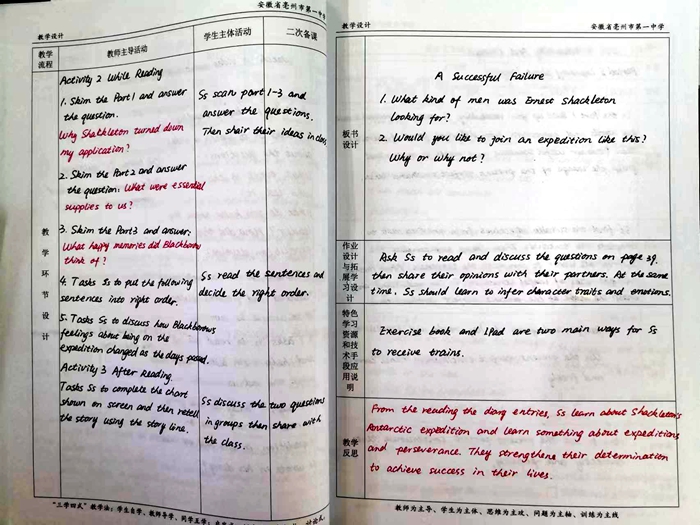 教学设计
安徽省亳州市第一中学
教学流程
教师主导活动
学生主体活动
二次备课
教学环节设计
Activity 2 While Reading
1. Skim the Part 1 and answer
the question.
Why Shackleton turned down
my application?
2. Skim the Part 2 and answer
the question: What were essential
supplies to us?
3. Skim the Part 3 and answer:
What happy memories did Blackborow
think of?
4. Tasks Ss to put the following
sentences into right order.
5. Tasks Ss to discuss how Blackborow's
feelings about being on the
expedition changed as the days passed.
Activity 3 After Reading
Tasks Ss to complete the chart
shown on screen and then retell
the story using the story line.
Ss scan part 1-3 and
answer the questions.
Then shair their ideas in class
Ss read the sentences and
decide the right order.
Ss discuss the two questions
in groups then share with
the class.
"三学四式"教学法：学生自学、教师导学、同学互学；
教学设计
安徽省亳州市第一中学
板书设计
A Successful Failure
1. What kind of men was Ernest Shackleton
looking for?
2. Would you like to join an expedition like this?
Why or why not?
作业设计与拓展学习设计
Ask Ss to read and discuss the questions on page 39,
then share their opinions with their partners. At the same
time, Ss should learn to infer character traits and emotions.
特色学习资源和技术手段应用说明
Exercise book and IPad are two main ways for Ss
to receive trains.
教学反思
From the reading the diary entries, Ss learn about Shackleton's
Antarctic expedition and learn something about expeditions
and perseverance. They strengthene their determination
to achieve success in their lives.
教师为主导、学生为主体、思维为主攻、问题为主轴、训练为主线